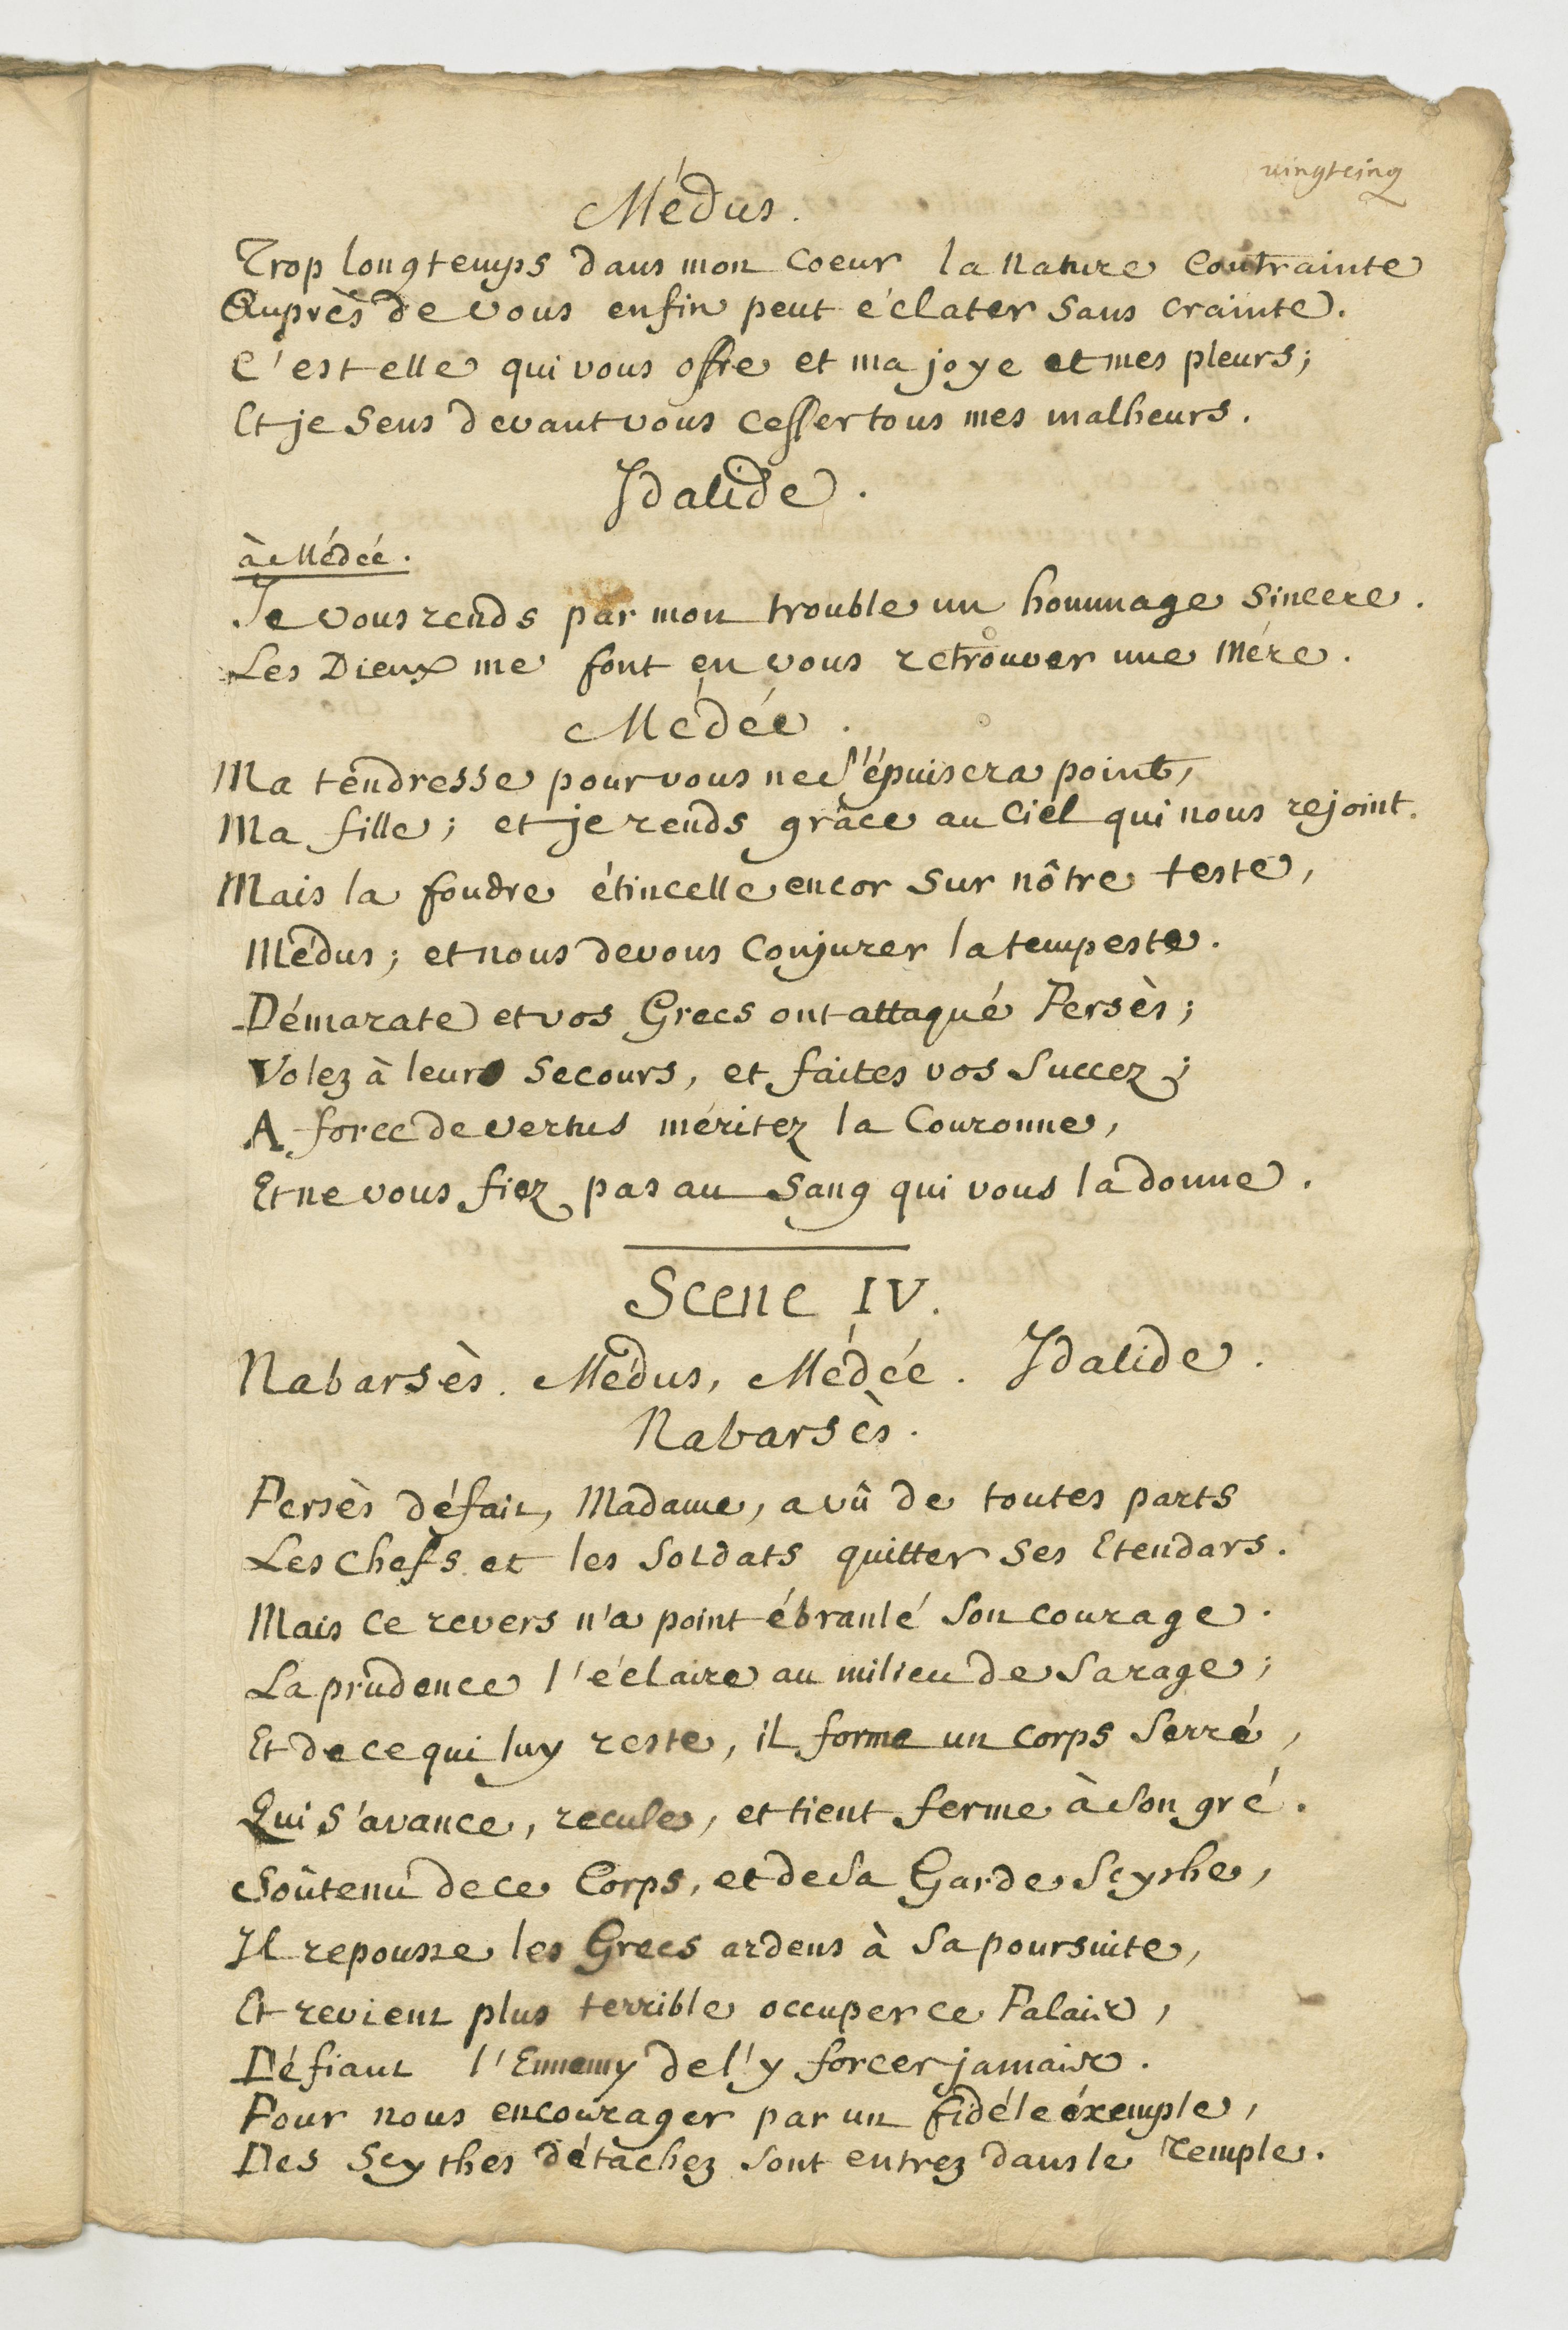 vingtcinq
Médus.
Trop longtemps dans mon coeur la nature contrainte
Auprès de vous enfin peut éclater sans crainte.
C'est elle qui vous offre et ma joye et mes pleurs;
Et je sens devant vous cesser tous mes malheurs.
Idalide.
à Médée.
Je vous rends par mon trouble un hommage sincere.
Les Dieux me font en vous retrouver une mére.
Médée.
Ma tendresse pour vous ne s'épuisera point,
Ma fille; et je rends grâce au Ciel qui nous rejoint.
Mais la foudre étincelle encor sur nôtre teste,
Médus; et nous devons conjurer la tempeste.
Démarate et vos Grecs ont attaqué Persès;
Volez à leur secours, et faites vos succez;
A force de vertus méritez la Couronne,
Et ne vous fiez pas au sang qui vous la donne.
Scene IV.
Nabarsès. Médus, Médée. Idalide.
Nabarsès.
Persès défait, Madame, a vû de toutes parts
Les chefs et les soldats quitter ses Etendars.
Mais ce revers n'a point ébranlé son courage.
La prudence l'éclaire au milieu de sa rage;
Et de ce qui luy reste, il forme un corps serré,
Qui s'avance, recule, et tient ferme à son gré.
Soûtenu de ce Corps, et de sa Garde Scythe,
Il repousse les Grecs ardens à sa poursuite,
Et revient plus terrible occuper ce Palais,
Défiant l'Ennemy de l'y forcer jamais.
Pour nous encourager par un fidéle éxemple,
Des Scythes détachez sont entrez dans le Temple.